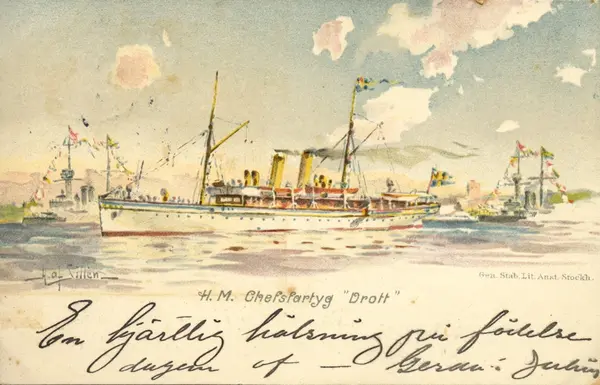 Gen. Stab. Lit. Anst. Stockh.
H. M. Chefsfartyg "Drott"
En hjärtlig hälsning på födelse
dagen af — Gerda